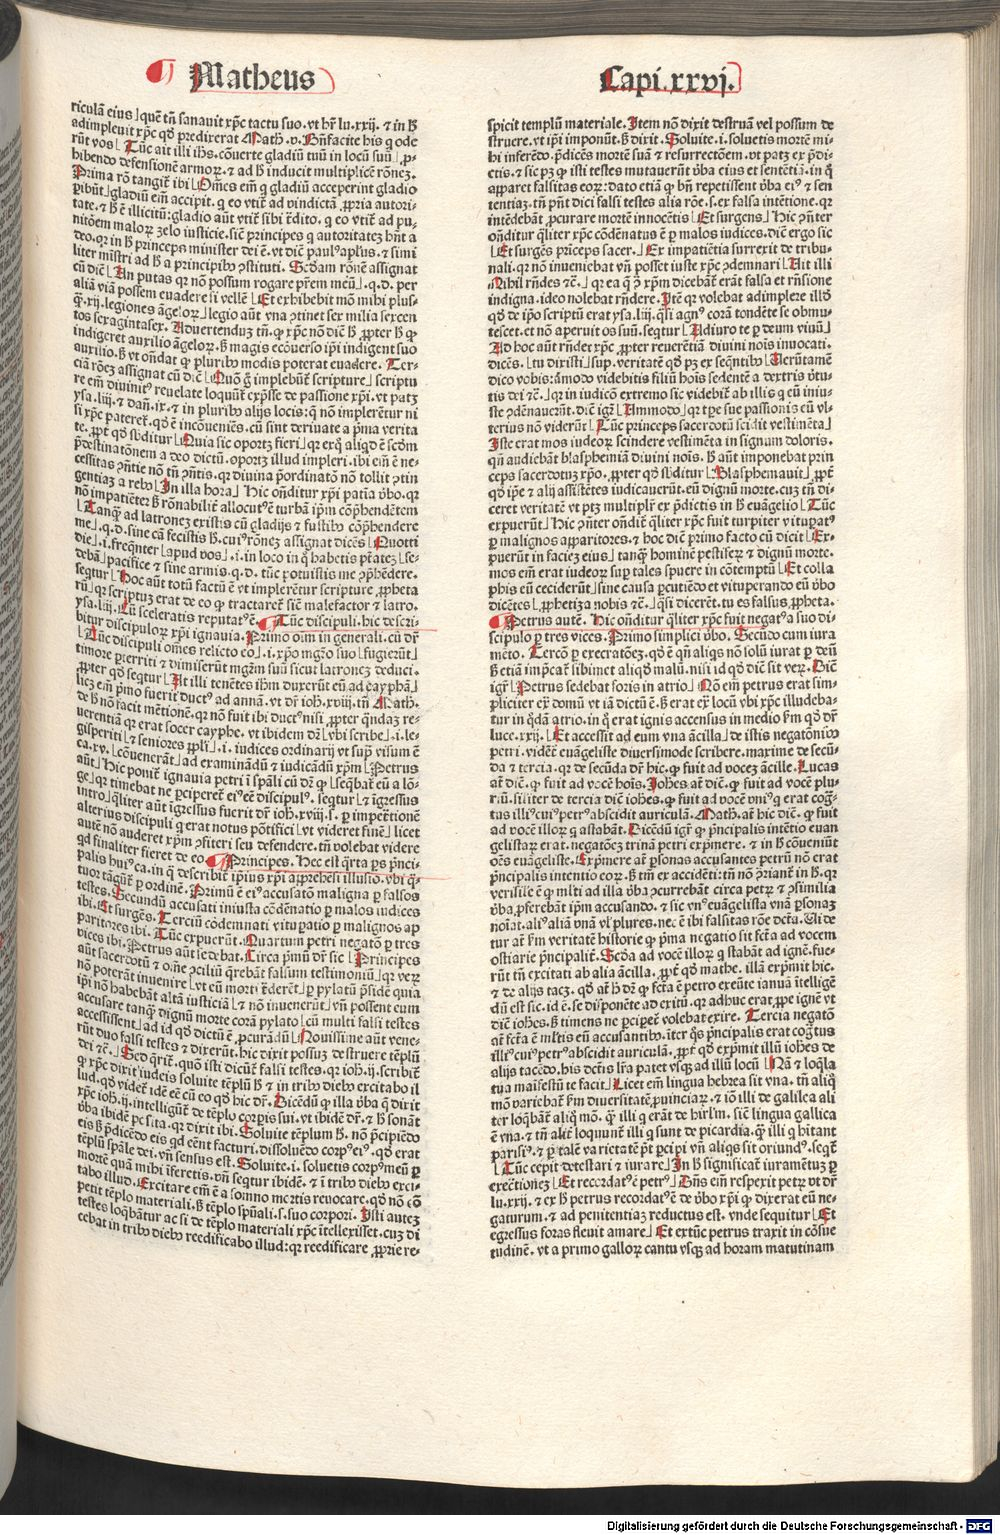 Matheus
Capi.xxvj.
riculã eius⌋ quẽ tñ sanauit xp̃c tactu suo. vt hr̃ lu. xxij. ⁊ in h̃
adimpleuit xp̃c qď predixerat Math. v. Bñfacite his q ode
rũt vos⌊Tũc ait illi ihs. cõuerte gladiũ tuũ in locũ suũ⌋ ꝓ-
hibendo defensionẽ armoꝝ. ⁊ ad h̃ inducit multiplicẽ rõneʒ.
Prima rõ tangit̃ ibi⌊Om̃es em̃ q gladiũ acceperint gladio
ꝑibũt⌋ gladiũ em̃ accipit. q eo vtit̃ ad vindictã ꝓpria autori-
tate. ⁊ h̃ ẽ illicitũ: gladio aũt vtit̃ sibi tr̃dito. q eo vtit̃ ad pu-
nitõem maloꝝ zelo iusticie. sic̃ principes q autoritateʒ hñt a
deo. qr in h̃ princeps minister dei ẽ. vt dic̃ paulꝰ apl̃us. ⁊ simi
liter mĩstri ad h̃ a principibꝰ ꝯstituti. Scd̃am rõnẽ assignat
cũ dic̃⌊An putas qr nõ possum rogare pr̃em meũ⌋ .q.d. per
aliã viã possem euadere si vellẽ⌊Et exhibebit mõ mihi plus-
q̃. xij. legiones ãgeloꝝ⌋ legio aũt vna ꝯtinet sex milia sexcen
tos sexagintasex. Aduertenduʒ tñ. ꝙ xp̃c nõ dic̃ h̃ ꝓpter h̃ ꝙ
indigeret auxilio ãgeloꝝ. h̃ magis ecõuerso ip̃i indigent suo
auxilio. h̃ vt oñdat ꝙ pluribꝰ modis poterat euadere. Ter-
ciã rõeʒ assignat cũ dic̃⌊Quõ g̃ implebũt̃ scripture⌋ scriptu
re em̃ diuinitꝰ reuelate loquũt̃ exp̃sse de passione xp̃i. vt patʒ
ysa. liij. ⁊ dañ. ix. ⁊ in pluribꝰ alijs locis: q̃ nõ implerẽtur ni
si xp̃c pateret̃. qď ẽ incõueniẽs. cũ sint deriuate a p̃ma verita
te. ꝓpt̃ qď s̃bditur⌊Quia sic oportʒ fieri⌋ qr exq̃ aliqď ẽ scd̃m
p̃destinatõnem a deo dictũ. oportʒ illud impleri. ibi em̃ ẽ ne-
cessitas ꝯñtie nõ tñ ꝯñtis. qr diuina p̃ordinatõ nõ tollit ꝯtin
gentiaʒ a rebꝰ⌊In illa hora⌋ Hic oñditur xp̃i patiã v̾bo. qr
nõ impatiẽter h̃ rõnabilit̃ allocutꝰ ẽ turbã ip̃m cõp̃hẽdẽtem
⌊Tanq̃ ad latroneʒ existis cũ gladijs ⁊ fustibꝰ cõp̃hendere
me⌋ .q.d. sine cã fecistis h̃. cuiꝰ rõneʒ assignat dicẽs⌊Quotti
die⌋ .i. freq̃nter⌊apud vos⌋ .i. in loco in q̃ habetis pt̃ateʒ⌊se-
debã⌋ pacifice ⁊ sine armis. q.d. tũc potuistis me ꝯp̃hẽdere.
seqtur⌊Hoc aũt totũ factũ ẽ vt implerẽtur scripture ꝓpheta
rũ⌋ qr scriptuʒ erat de eo ꝙ tractaret̃ sic̃ malefactor ⁊ latro.
ysa. liij. Cũ sceleratis reputatꝰ ẽ. ¶⌊Tũc discipuli. hic descri-
bitur discipuloꝝ xp̃i ignauia. Primo oim in generali. cũ dr̃
⌊Tũc discipuli om̃es relicto eo⌋ .i. xp̃o mg̃ro suo⌊fugierũt⌋
timore perterriti ⁊ dimiserũt mg̃rm suũ sicut latroneʒ deduci.
ꝓpter qď seqtur⌊At illi tenẽtes ihm̃ duxerũt eũ ad cayphã⌋
licʒ em̃ p̃mo fuerit ductꝰ ad annã. vt dr̃ ioh. xviij. tñ Math.
de h̃ nõ facit mẽtionẽ. qr nõ fuit ibi ductꝰ nisi ꝓpter q̃ndaʒ re-
uerentiã qr erat socer cayphe. vt ibidem dr̃⌊vbi scribe⌋ .i. le-
gisperiti⌊⁊ seniores ppl̃i⌋ .i. iudices ordinarij vt sup̃ visum ẽ
ca. xv.⌊cõuenerãt⌋ ad examinãdũ ⁊ iudicãdũ xp̃m⌊Petrus
aũt⌋ Hic ponit̃ ignauia petri ĩ sp̃ali cũ dr̃ ꝙ⌊seq̃bat̃ eũ a lõ-
ge⌋ qr timebat ne ꝑciperet̃ eiꝰ eẽ discipulꝰ. seqtur⌊⁊ ĩgressus
intro⌋ q̃liter aũt ĩgressus fuerit dr̃ ioh. xviij. s. ꝑ impet̃tionẽ
alterius discipuli q erat notus põtifici⌊vt videret finẽ⌋ licet
autẽ nõ auderet xp̃m ꝯfiteri seu defendere. tñ volebat videre
qd finaliter fieret de eo. ¶⌊Principes. Hec est q̃rta ps p̃nci-
palis huiꝰ ca. in q̃ describit̃ ip̃ius xp̃i app̃rehẽsi illusio. vbi q̃-
tuor tãgũt̃ ꝑ ordinẽ. Primũ ẽ eiꝰ accusatõ maligna ꝑ falsos
testes. Secundũ accusati iniusta cõdẽnatio ꝑ malos iudices
ibi. Et surgẽs. Terciũ cõdemnati vitupatio ꝑ malignos ap
paritores ibi. Tũc expuerũt. Quartum petri negatõ ꝑ tres
vices ibi. Petrus aũt sedebat. Circa p̃mũ dr̃ sic⌊Principes
aũt sacerdotũ ⁊ om̃e ꝯciliũ q̃rebãt falsum testimoniũ⌋ qr veꝝ
nõ poterãt inuenire⌊vt eũ morti tr̃derẽt⌋ ꝑ pylatũ p̃sidẽ quia
ip̃i nõ habebãt altã iusticiã⌊⁊ nõ inuenerũt⌋ vñ possent eum
accusare tanq̃ dignũ morte corã pylato⌊cũ multi falsi testes
accessissent⌋ ad id qď dictũ ẽ ꝓcurãdũ⌊Nouissime aũt vene-
rũt duo falsi testes ⁊ dixerũt. hic dixit possuʒ destruere tẽplũ
dei ⁊c̃. Sed q̃rit̃. quõ isti dicũt̃ falsi testes. qr ioh. ij. scribit̃
ꝙ xp̃c dixit iudeis soluite tẽplũ h̃ ⁊ in tribꝰ diebꝰ excitabo il
lud. qď videt̃ idẽ eẽ cũ eo qď hic dr̃. Dicẽdũ ꝙ illa v̾ba q̃ dixit
xp̃c ioh. ij. intelligũt̃ de tẽplo corꝑis sui. vt ibidẽ dr̃. ⁊ h̃ sonãt
v̾ba ibidẽ posita. qr dixit ibi. Soluite tẽplum h̃. nõ p̃cipiẽdo
eis h̃ p̃dicẽdo eis qď eẽnt facturi. dissoluẽdo corpꝰ eiꝰ. qď erat
tẽplũ sp̃ale dei. vñ sensus est. Soluite. i. soluetis corpꝰ meũ ꝑ
mortẽ quã mihi ĩferetis. vñ seqtur ibidẽ. ⁊ ĩ tribꝰ diebꝰ exci-
tabo illud. Excitare em̃ ẽ a somno mortis reuocare. qď nõ cõ
petit tẽplo materiali. h̃ tẽplo sp̃uali. s. suo corpori. Isti auteʒ
testes loq̃bãtur ac si de tẽplo materiali xp̃c ĩtellexisset. cuʒ di
cebat in tribꝰ diebꝰ reedificabo illud: qr reedificare ꝓprie re-
spicit templũ materiale. Item nõ dixit destruã vel possum de
struere. vt ip̃i imponũt. h̃ dixit. Soluite. i. soluetis mortẽ mi-
hi inferẽdo. p̃dicẽs mortẽ suã ⁊ resurrectõem. vt patʒ ex p̃di-
ctis. ⁊ sic pʒ ꝙ isti testes mutauerũt v̾ba eius et sentẽtiã. in q̃
apparet falsitas eoꝝ: dato etiã ꝙ bñ repetissent v̾ba eiꝰ ⁊ sen
tentiaʒ. tñ p̃nt dici falsi testes alia rõe. s. ex falsa intẽtione. qr
intẽdebãt ꝓcurare mortẽ innocẽtis⌊Et surgens⌋ Hic ꝯñter
oñditur q̃liter xp̃c cõdẽnatus ẽ ꝑ malos iudices. dicẽ ergo sic
⌊Et surgẽs p̃ĩceps sacer.⌋ Ex impatiẽtia surrexit de tribu-
nali. qr nõ inueniebat vñ posset iuste xp̃c ꝯdemnari⌊Ait illi
Nihil rñdes ⁊c̃.⌋ qr ea q̃ ꝯ xp̃m dicebãt̃ erãt falsa et rñsione
indigna. ideo nolebat rñdere. Itẽ qr volebat adimplere illď
qď de ip̃o scriptũ erat ysa. liij. q̃si agnꝰ corã tondẽte se obmu-
tescet. et nõ aperuit os suũ. seqtur⌊Adiuro te ꝑ deum viuũ⌋
Ad hoc aũt rñdet xp̃c ꝓpter reuerẽtiã diuini noĩs inuocati.
dicẽs.⌊tu dixisti⌋ sup. veritatẽ qď pʒ ex seq̃ntibꝰ⌊Verũtamẽ
dico vobis: ãmodo videbitis filiũ hoĩs sedentẽ a dextris v̾tu-
tis dei ⁊c̃.⌋ qr in iudicõ extremo sic videbit̃ ab illis q eũ iniu-
ste ꝯdẽnauerũt. dic̃ igit̃⌊Ammodo⌋ qr tp̃e sue passionis cũ vl-
terius nõ viderũt⌊Tũc princeps sacerdotũ scidit vestimẽta⌋
Iste erat mos iudeoꝝ scindere vestimẽta in signum doloris.
qñ audiebãt blasphemiã diuini noĩs. h̃ aũt imponebat prin
ceps sacerdotuʒ xp̃o. ꝓpter qď s̃bditur⌊Blasphemauit⌋ ꝓpt̃
qď ip̃e ⁊ alij assistẽtes iudicauerũt. eũ dignũ morte. cuʒ tñ di-
ceret veritatẽ vt ptʒ multiplr̃ ex p̃dictis in h̃ euãgelio⌊Tũc
expuerũt⌋ Hic ꝯñter oñdit̃ q̃liter xp̃c fuit turpiter vitupatꝰ
ꝑ malignos apparitores. ⁊ hoc dic̃ primo facto cũ dicit⌊Ex-
puerũt in facieʒ eius⌋ tanq̃ hominẽ pestiferʒ ⁊ dignũ morte.
mos em̃ erat iudeoꝝ suꝑ tales spuere in cõtemptũ⌊Et colla
phis eũ ceciderũt⌋ sine causa ꝑcutiẽdo et vituperando eũ v̾bo
dicẽtes⌊ꝓphetiza nobis ⁊c̃.⌋ q̃si dicerẽt. tu es falsus ꝓpheta.
¶⌊Petrus autẽ. Hic oñditur q̃liter xp̃c fuit negatꝰ a suo di-
scipulo ꝑ tres vices. Primo simplici v̾bo. Secũdo cum iura
mẽto. Tercõ ꝑ execratõeʒ. qď ẽ qñ aliqs nõ solũ iurat ꝑ deũ
h̃ etiã imp̃cat̃ sibimet aliqď malũ. nisi id qď dic̃ sit veꝝ. Dic̃
igr̃⌊Petrus sedebat foris in atrio⌋ Nõ em̃ petrus erat sim-
pliciter ex̃ domũ vt iã dictũ ẽ. h̃ erat ex̃ locũ vbi xp̃c illudeba-
tur in q̃dã atrio. in q̃ erat ignis accensus in medio s̃m qď dr̃
luce. xxij.⌊Et accessit ad eum vna ãcilla⌋ de istis negatõnibꝰ
petri. vidẽt̃ euãgeliste diuersimode scribere. maxime de secũ-
da ⁊ tercia. qr de secũda dr̃ hic. ꝙ fuit ad voceʒ ãcille. Lucas
at̃ dic̃. ꝙ fuit ad vocẽ hoĩs. Iohes at̃ dic̃. ꝙ fuit ad vocẽ plu-
riũ. silr̃iter de tercia dic̃ iohes. ꝙ fuit ad vocẽ vniꝰ q erat cog̃-
tus illiꝰ cuiꝰ petrꝰ abscidit auriculã. Math. at̃ hic dic̃. ꝙ fuit
ad vocẽ illoꝝ q astabãt. Dicẽdũ igr̃ ꝙ p̃ncipalis intẽtio euan
gelistaꝝ erat. negatõeʒ trinã petri exp̃mere. ⁊ in h̃ cõueniũt
oẽs euãgeliste. Exp̃mere at̃ ꝑsonas accusantes petrũ nõ erat
p̃ncipalis intentio eoꝝ. h̃ tñ ex accidẽti: tñ nõ ꝯriant̃ in h̃. qr
verisile ẽ ꝙ ml̃ti ad illa v̾ba ꝯcurrebãt circa petrʒ ⁊ ꝯsimilia
v̾ba ꝓferebãt ip̃m accusando. ⁊ sic vnꝰ euãgelista vnã ꝑsonaʒ
noĩat. aliꝰ aliã vnã vl̃ plures. nec ẽ ibi falsitas rõe dc̃ta. Vide
tur at̃ s̃m veritatẽ historie ꝙ p̃ma negatio sit fc̃ta ad vocem
ostiarie p̃ncipalit̃. Scd̃a ad vocẽ illoꝝ q stabãt ad ignẽ. fue-
rũt tñ excitati ab alia ãcilla. ꝓpt̃ qď mathe. illã exp̃mit hic.
⁊ de alijs tacʒ. qď at̃ h̃ dr̃ ꝙ fc̃ta ẽ petro exeũte ianuã ĩtelligẽ
dũ est sic. id ẽ. se disponẽte ad exitũ. qr adhuc erat ꝓpe ignẽ vt
dic̃ iohes. h̃ timens ne ꝑciperet̃ volebat exire. Tercia negatõ
at̃ fc̃ta ẽ ml̃tis eũ accusantibꝰ. iter q̃s p̃ncipalis erat cog̃tus
illiꝰ cuiꝰ petrꝰ abscidit auriculã. ꝓpt̃ qď exp̃mit illũ iohes de
alijs tacẽdo. his dc̃tis lr̃a patet vsqʒ ad illũ locũ⌊Nã ⁊ loq̃la
tua mãifestũ te facit⌋ Licet em̃ lingua hebrea sit vna. tñ aliq̃
mõ variebat̃ s̃m diuersitatẽ ꝓuinciaꝝ. ⁊ iõ illi de galilea ali
ter loq̃bãt̃ aliq̃ mõ. q̃ illi q erãt de hirl̃m. sic̃ lingua gallica
ẽ vna. ⁊ tñ alit̃ loquunt̃ illi q sunt de picardia. q̃ illi q hitant
parisiꝰ. ⁊ ꝑ talẽ varietatẽ pt̃ ꝑcipi vñ aliqs sit oriundꝰ. seqt̃
⌊Tũc cepit detestari ⁊ iurare⌋ In h̃ significat̃ iuramẽtuʒ ꝑ
exec̃tioneʒ⌊Et recordatꝰ ẽ petrꝰ⌋ Dñs em̃ respexit petrʒ vt dr̃
lu. xxij. ⁊ ex h̃ petrus recordatꝰ ẽ de v̾bo xp̃i ꝙ dixerat eũ ne-
gaturum. ⁊ ad penitentiaʒ reductus est. vnde sequitur⌊Et
egressus foras fleuit amare⌋ Et extũc petrus traxit in cõsue
tudinẽ. vt a primo galloꝝ cantu vsqʒ ad horam matutinam
Digitalisierung gefördert durch die Deutsche Forschungsgemeinschaft - DFG